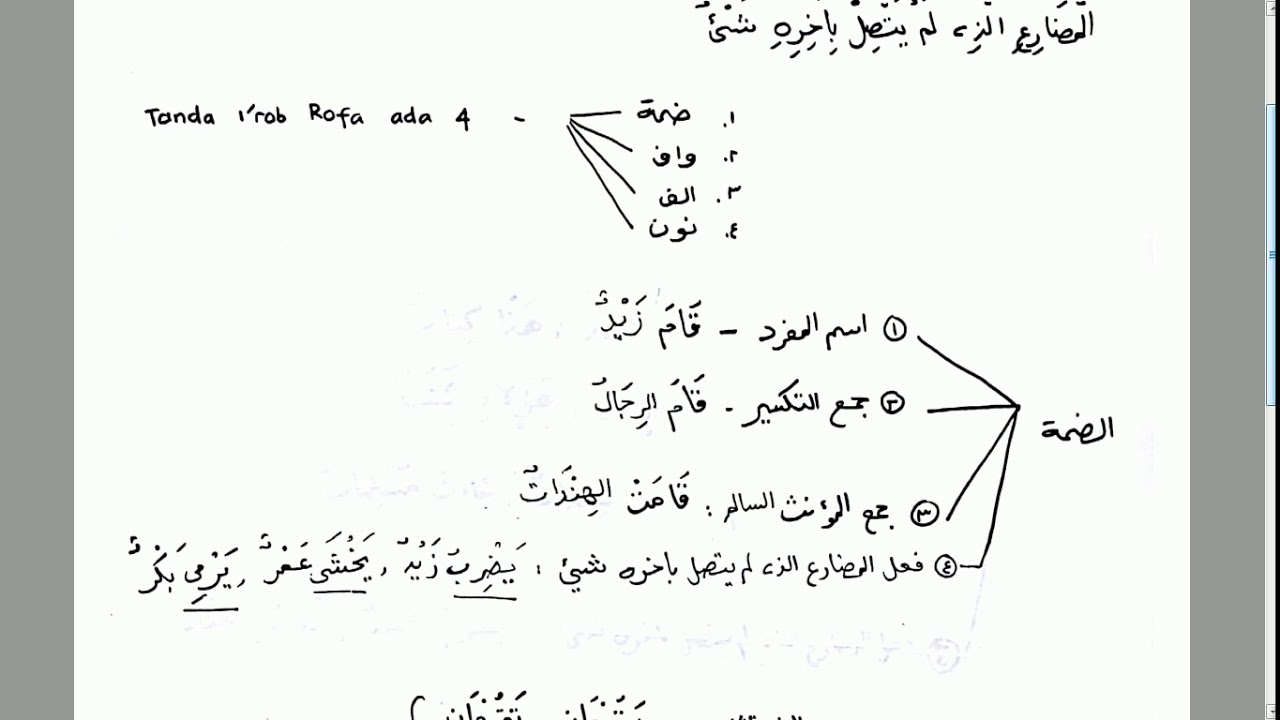 المضَارِعِ الذِى لَمْ يَتَّصِلْ بِاخِرِهِ شَئٌ
Tanda I'rob Rofa ada 4 -
١. ضمة
٢. واو
٣. الف
٤. نون
الضمة
① اسم المفرد – قَامَ زَيْدٌ
② جمع التكسير - قَامَ الرِجَالُ
③ جمع المؤنث السالم : قَامَتْ الهِنْدَاتُ
④ فعل المضارع الذى لم يتصل باخره شيئ : يَضْرِبُ زَيْدٌ ، يَخْشَى عَمْرٌ ، يَرْمِى بَكْرٌ